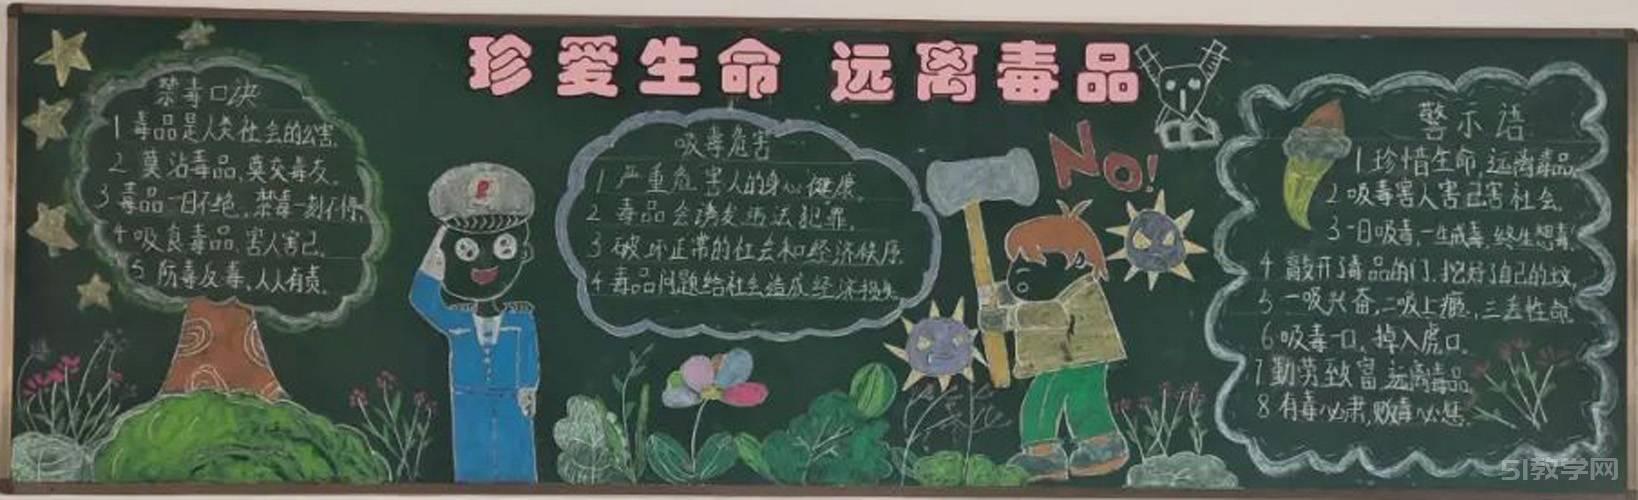 珍爱生命 远离毒品
禁毒口诀
1 毒品是人类社会的公害.
2 莫沾毒品,莫交毒友.
3 毒品一日不绝,禁毒一刻不停.
4 吸食毒品,害人害己.
5 防毒反毒,人人有责.
吸毒危害
1 严重危害人的身心健康.
2 毒品会诱发违法犯罪.
3 破坏正常的社会和经济秩序.
4 毒品问题给社会造成经济损失.
NO!
警示语
1 珍惜生命,远离毒品.
2 吸毒害人害己害社会.
3 一日吸毒,一生戒毒,终生想毒.
4 敲开了毒品的门,挖好了自己的坟.
5 一吸兴奋,二吸上瘾,三丢性命.
6 吸毒一口,掉入虎口.
7 勤劳致富,远离毒品.
8 有毒必肃,贩毒必惩.
51教学网